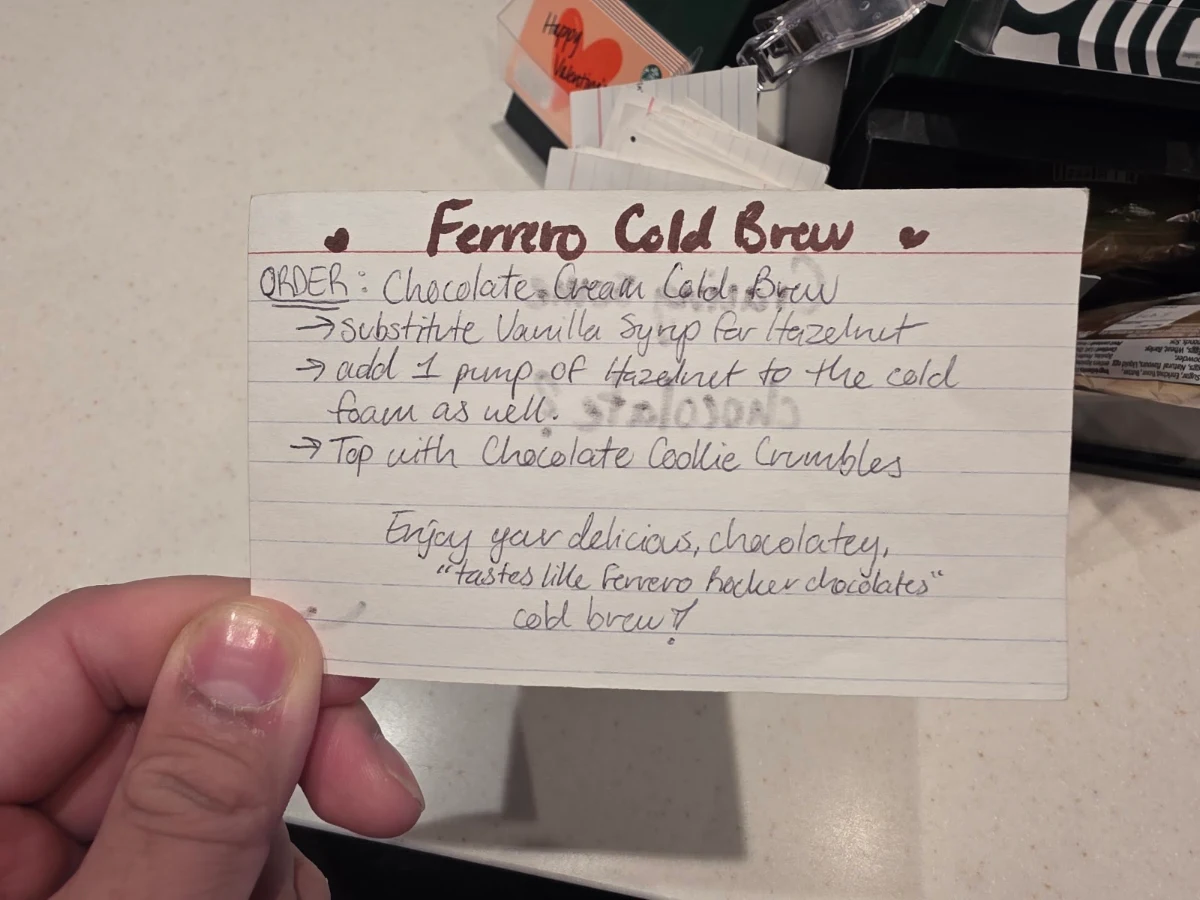 Happy
Valentine's
Ferrero Cold Brew
ORDER: Chocolate Cream Cold Brew
→ substitute Vanilla Syrup for Hazelnut
→ add 1 pump of Hazelnut to the cold
foam as well.
→ Top with Chocolate Cookie Crumbles
Enjoy your delicious, chocolatey,
"tastes like Ferrero Rocher chocolates"
cold brew!
chocolate?